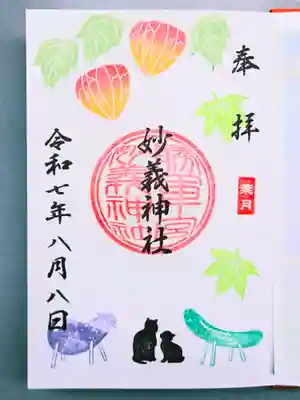 奉拝
葉月
妙義神社
令和七年八月八日